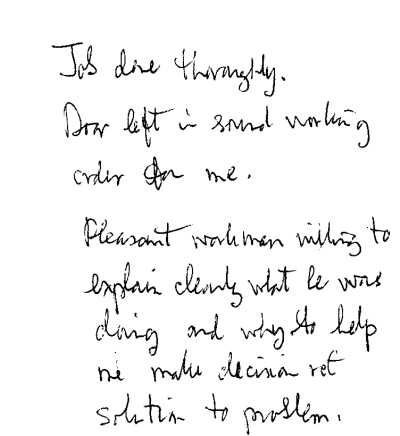 Job done thoroughly.
Door left in sound working
order for me.
Pleasant workman willing to
explain clearly what he was
doing and why to help
me make decision ret
solution to problem.